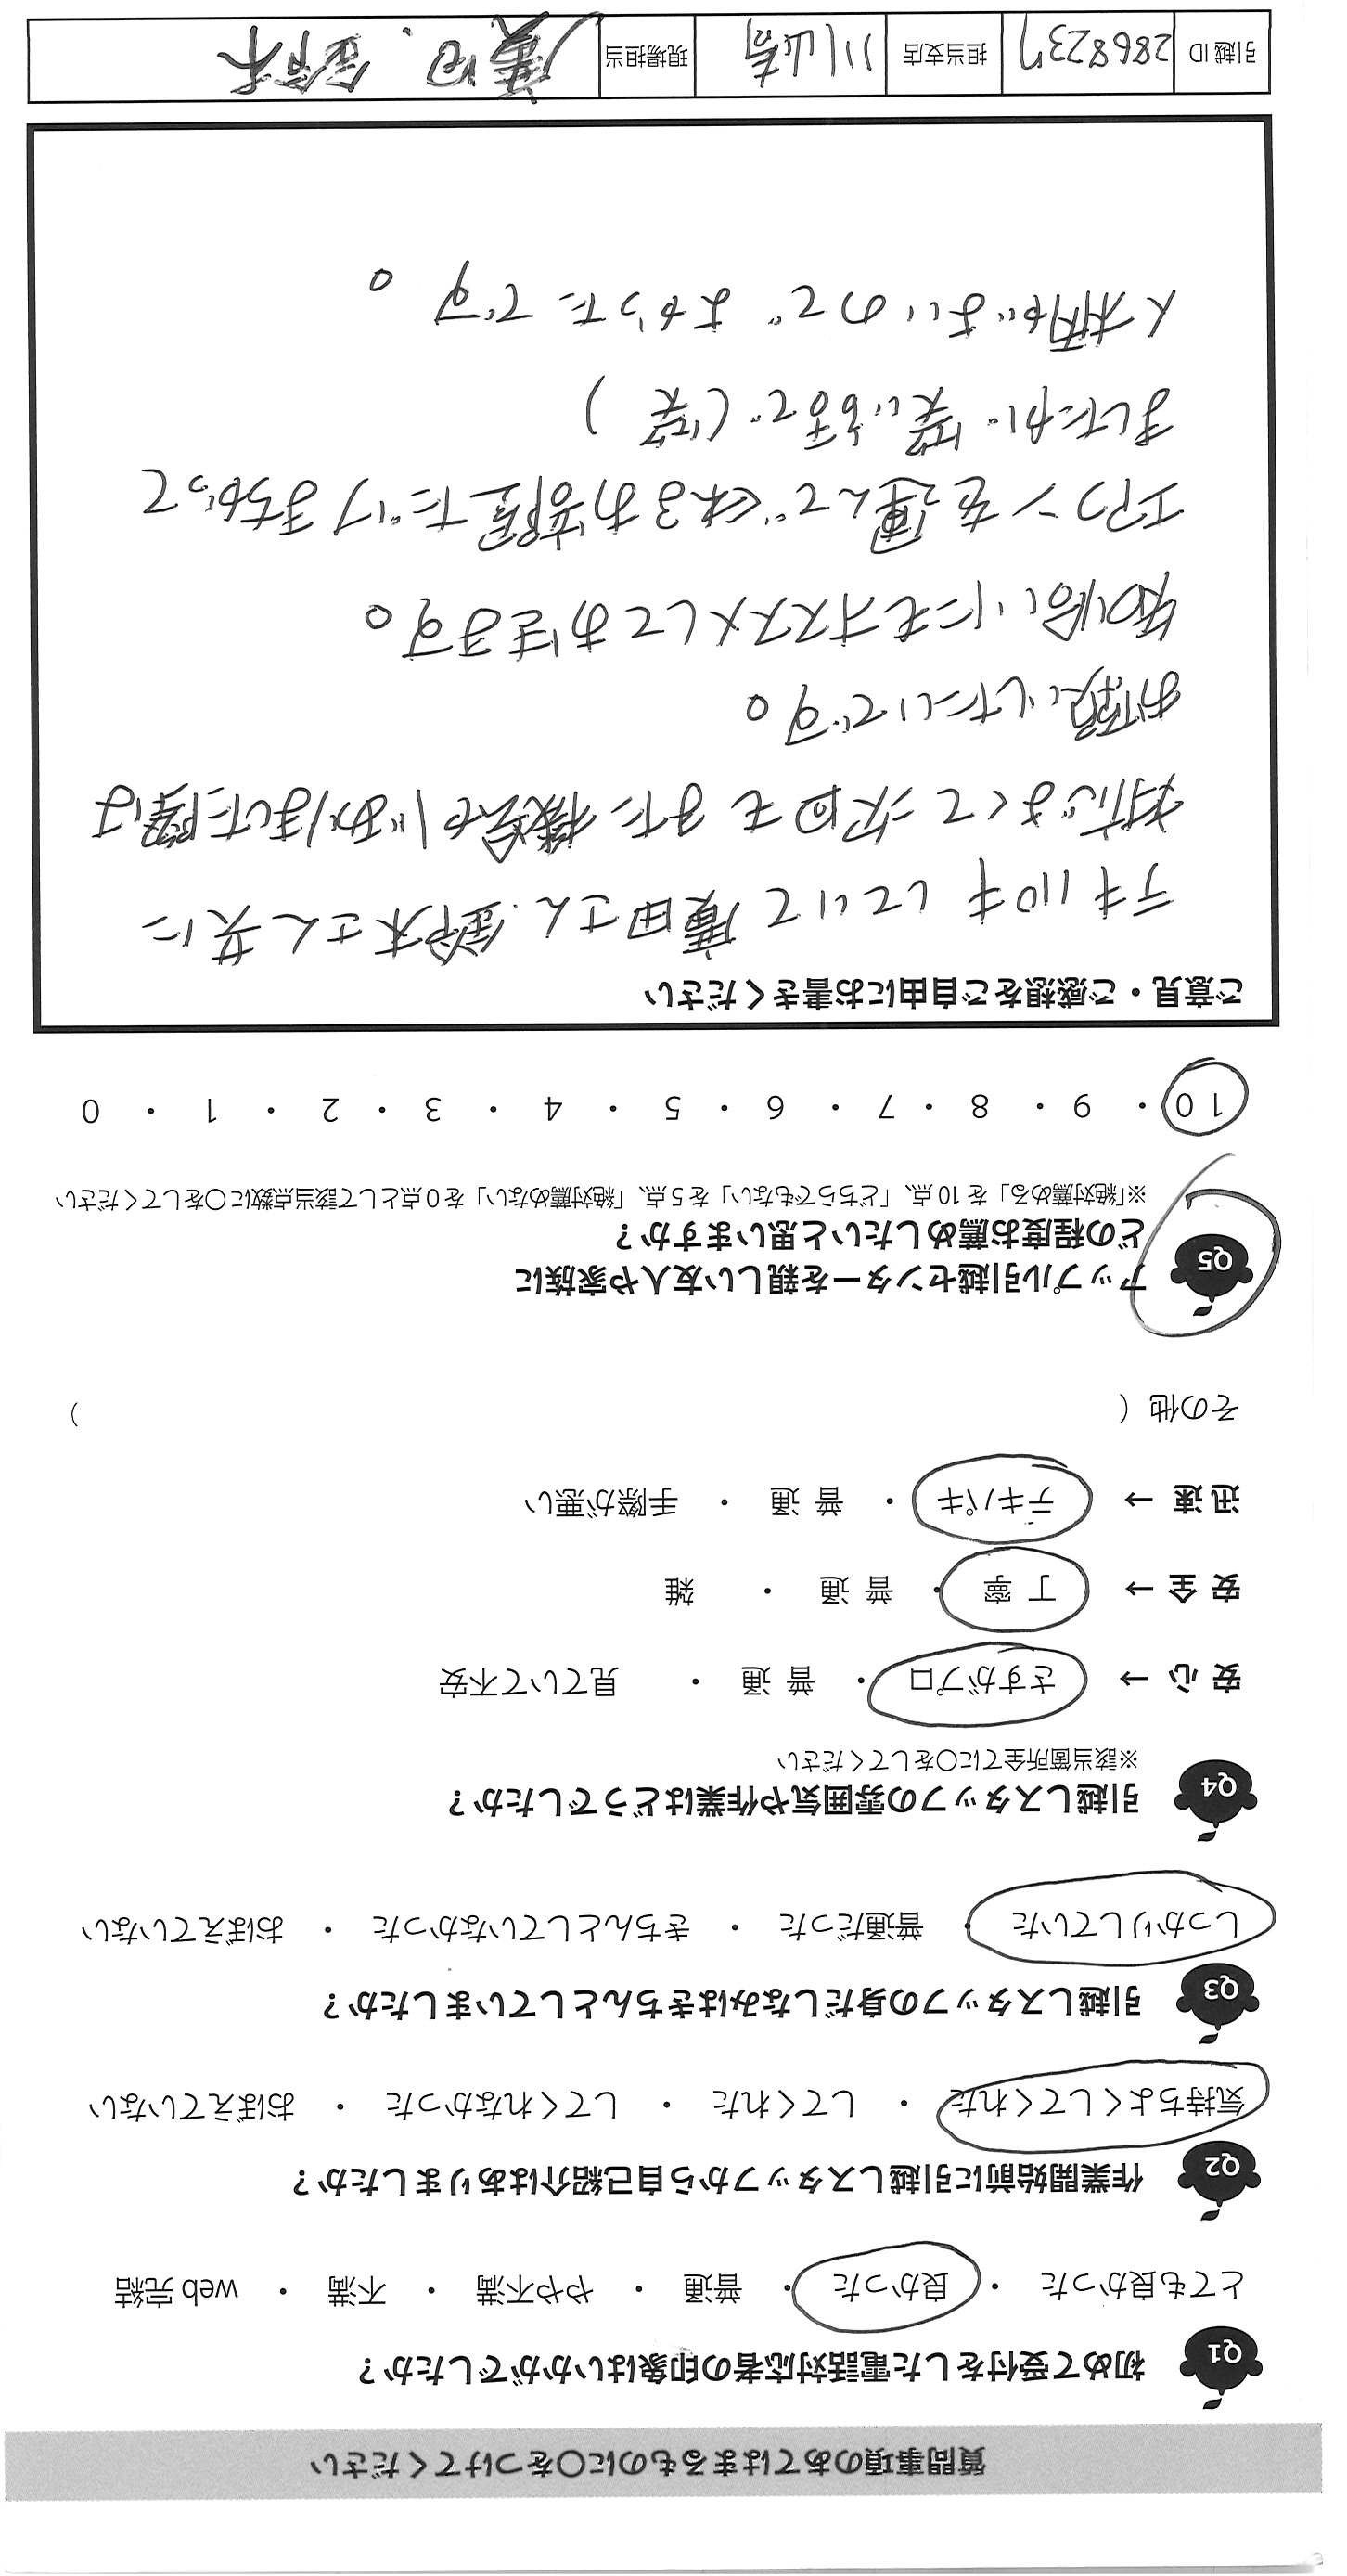 質問事項のあてはまるものに○をつけてください
Q1 初めて受付をした電話対応者の印象はいかがでしたか？
とても良かった ・ 良かった ・ 普通 ・ やや不満 ・ 不満 ・ web 完結
Q2 作業開始前に引越しスタッフから自己紹介はありましたか？
気持ちよくしてくれた ・ してくれた ・ してくれなかった ・ おぼえていない
Q3 引越しスタッフの身だしなみはきちんとしていましたか？
しっかりしていた ・ 普通だった ・ きちんとしていなかった ・ おぼえていない
Q4 引越しスタッフの雰囲気や作業はどうでしたか？
※該当箇所全てに○をしてください
安 心 → さすがプロ ・ 普 通 ・ 見ていて不安
安 全 → 丁 寧 ・ 普 通 ・ 雑
迅 速 → テキパキ ・ 普 通 ・ 手際が悪い
その他 (　　　)
Q5 アップル引越センターを親しい友人や家族に
どの程度お薦めしたいと思いますか？
※「絶対薦める」を 10 点、「どちらでもない」を 5 点、「絶対薦めない」を 0 点として該当点数に○をしてください
10 ・ 9 ・ 8 ・ 7 ・ 6 ・ 5 ・ 4 ・ 3 ・ 2 ・ 1 ・ 0
ご意見・ご感想をご自由にお書きください
テキパキしていて廣田さん.鈴木さん共に
対応よくて次回もまた機会がありました際は
お願いしたいです。
知り合いにもオススメしておきます。
エアコンを運んでくれるお部屋だけまちがって
ましたが笑い話で(笑)
人柄がよいのでよかったです。
引越 ID 2868237 担当支店 川崎 現場担当 廣田、鈴木